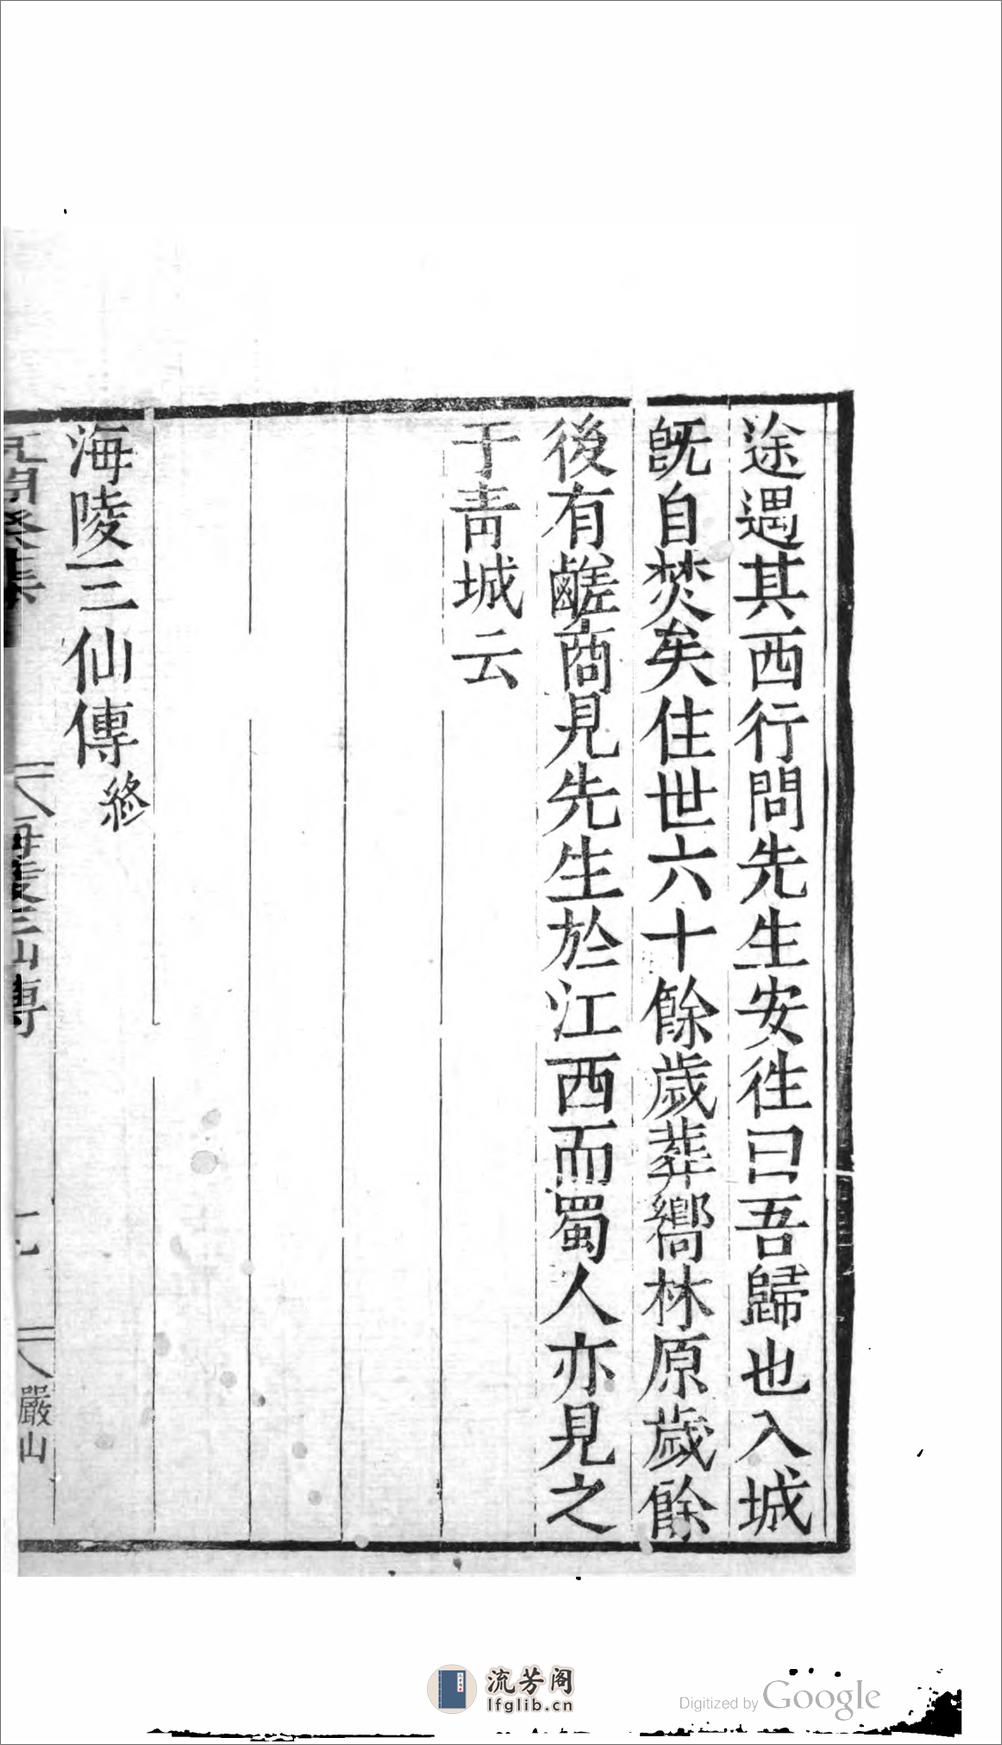 途遇其西行問先生安徃曰吾歸也入城
旣自焚矣住世六十餘歲葬嚮林原歲餘
後有鹺商見先生於江西而蜀人亦見之
于青城云
海陵三仙傳終
海陵三仙傳
嚴山
流芳阁
lfglib.cn
Digitized by Google